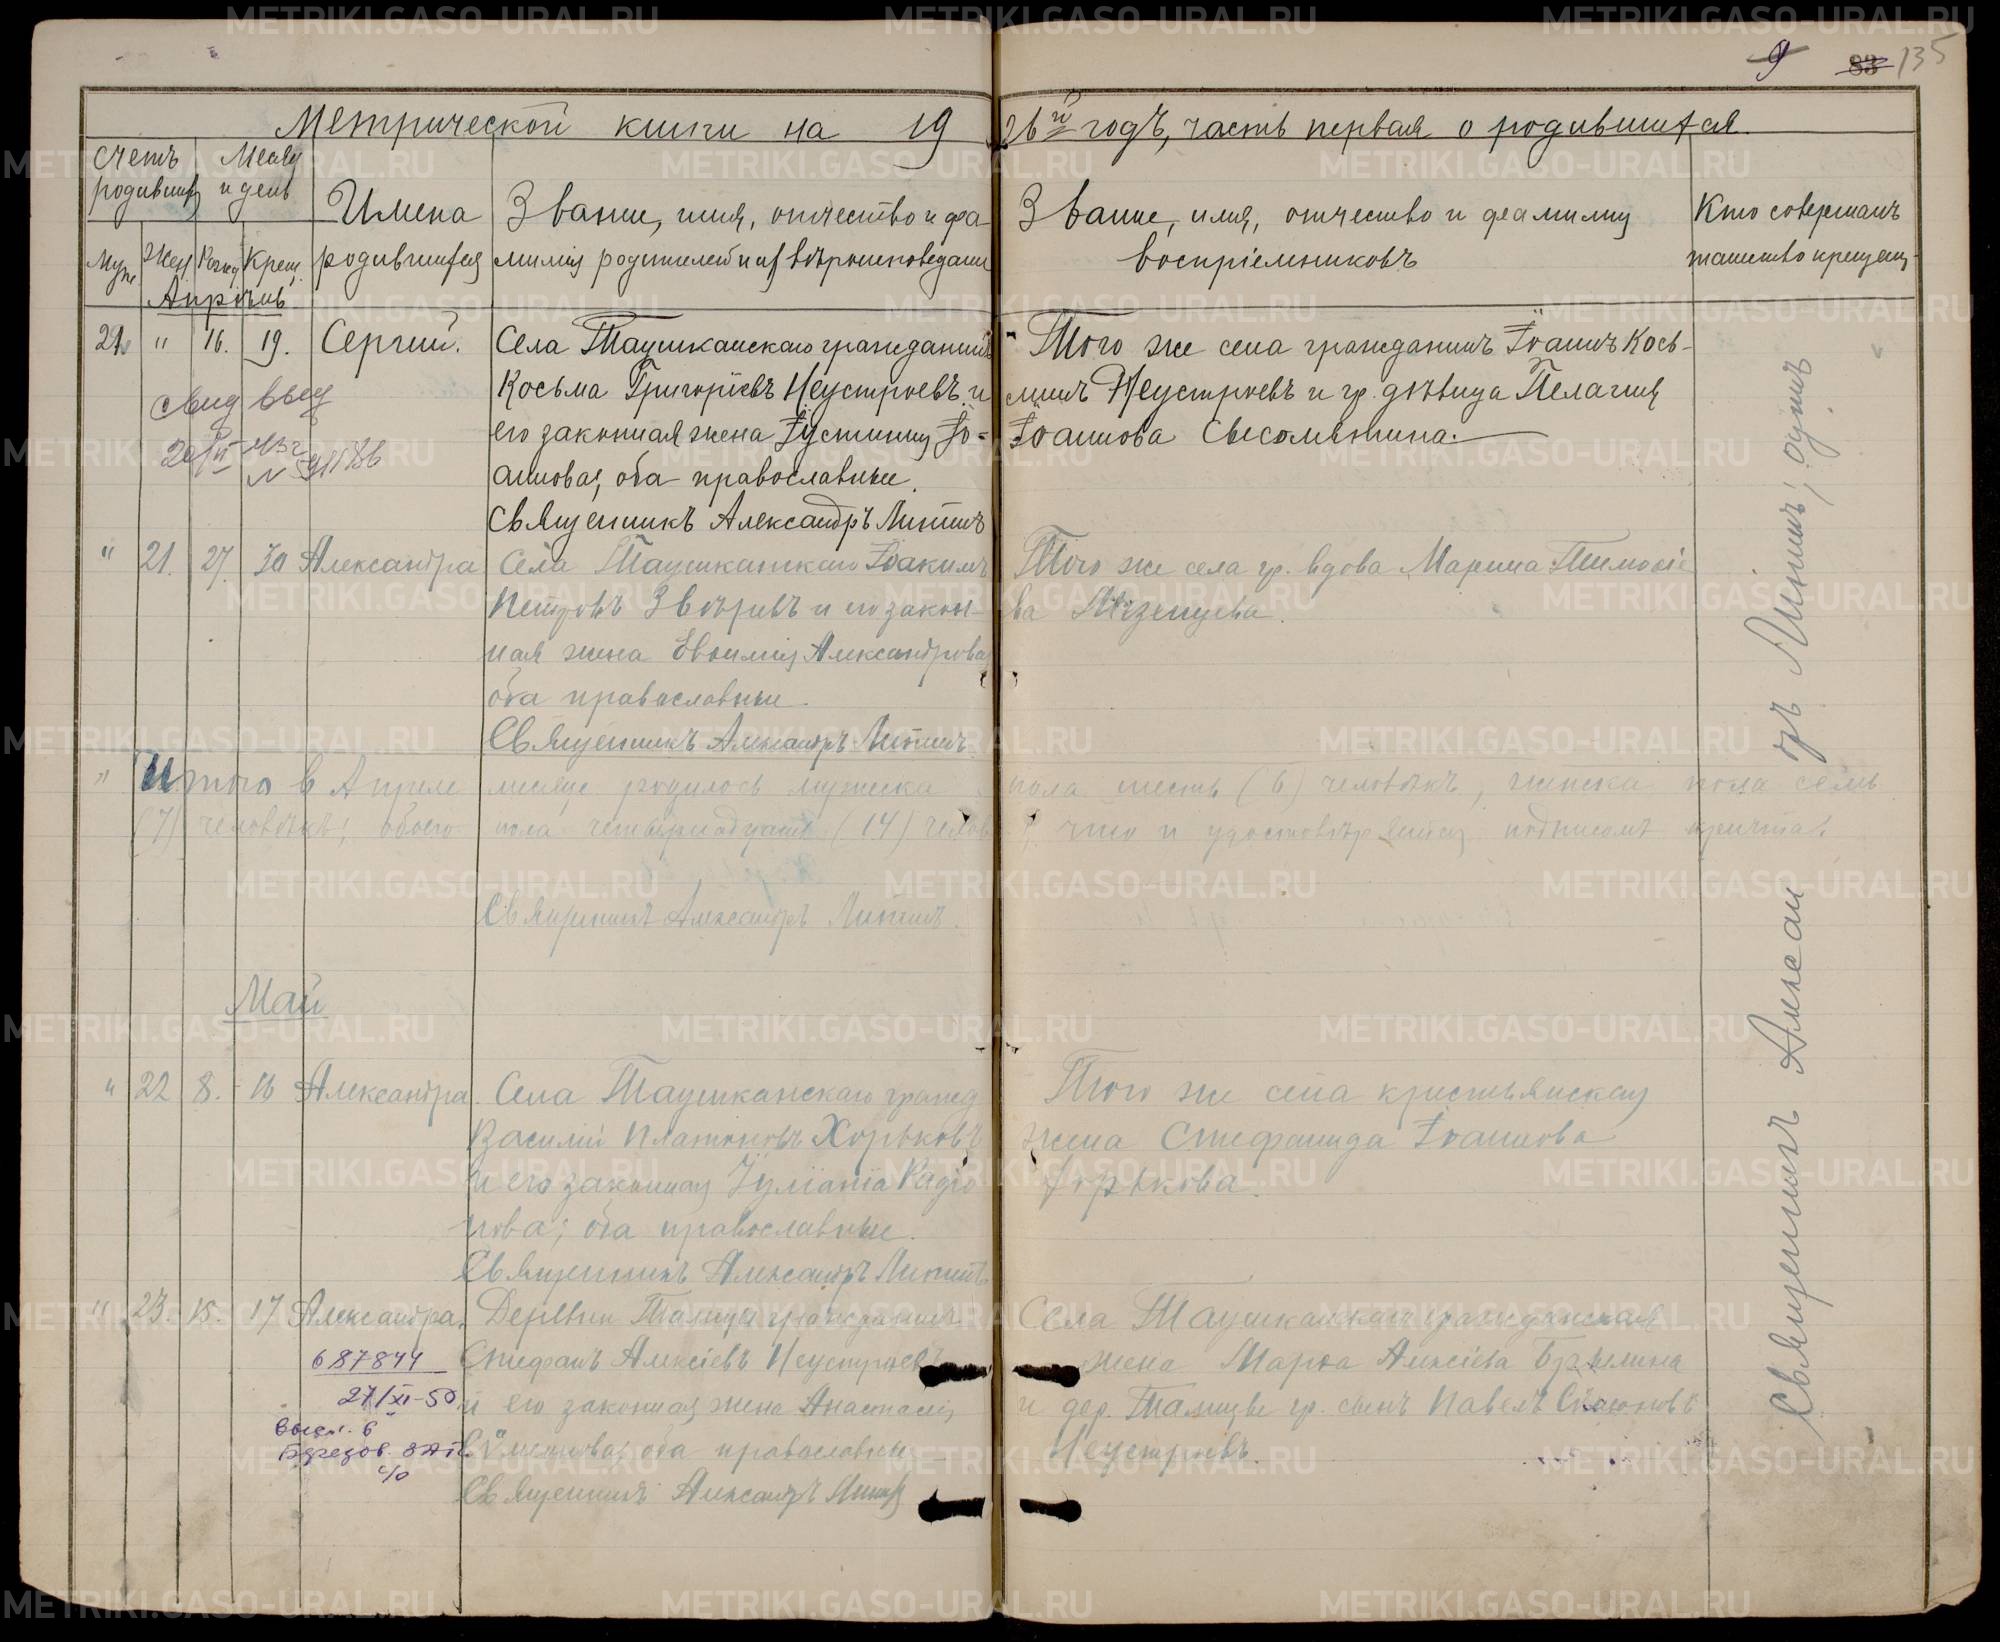 9 83 135
Метрической книги на 19
26й годъ, часть первая о родившихся.
Счетъ родивших
Месяц и день
Имена родившихся
Звание, имя, отчество и фа-
милия родителей и их вѣроисповедания
Звание, имя, отчество и фамилия
воспріемниковъ
Кто совершалъ
таинство крещен.
Муж Жен Рожд Крещ.
Апрѣль
21. " 16. 19. Сергий.
Села Таушканскаго гражданинъ
Косьма Григоріевъ Неустроевъ и
его законная жена Іустиния Іо-
аннова, оба православные.
Священникъ Александръ Липинъ
Того же села гражданинъ Іоаннъ Кось-
минъ Неустроевъ и гр. дѣвица Пелагия
Іоаннова
свид выд
" 21. 27. 30 Александра
Села Таушканскаго Іоакимъ
Петровъ Звѣревъ и его закон-
ная жена Евѳимия Александрова
оба православные.
Священникъ Александръ Липинъ
Того же села гр. вдова Марина Тимоѳіе
ва Мезенцева.
" Итого в Апреле месяце родилось мужска пола шесть (6) человѣкъ, женска пола семь
(7) человѣкъ; обоего пола четырнадцать (14) челов что и удостовѣряется подписомъ причта:
Священникъ Александръ Липинъ.
Май
" 22 8. 16 Александра.
Села Таушканскаго гражд
Василий Платоновъ Хорьковъ
и его законная Іуліанія Радіо
нова; оба православные.
Священникъ Александръ Липинъ
Того же села крестьянская
жена Стефанида Іоаннова
Хорькова.
" 23. 15. 17 Александра.
Деревни Талицы гражданинъ
Стефанъ Алексіевъ Неустроевъ
и его законная жена Анастасия
оба православные
Священникъ Александръ Липинъ
Села Таушканскаго гражданская
жена Марѳа Алексіева
и дер. Талицы гр. сынъ Павелъ
Неустроевъ.
687844
27/XI-50
выдл. в
Березов. ЗАГС
с/о
Священникъ Алексан ръ Липинъ; одинъ
METRIKI.GASO-URAL.RU